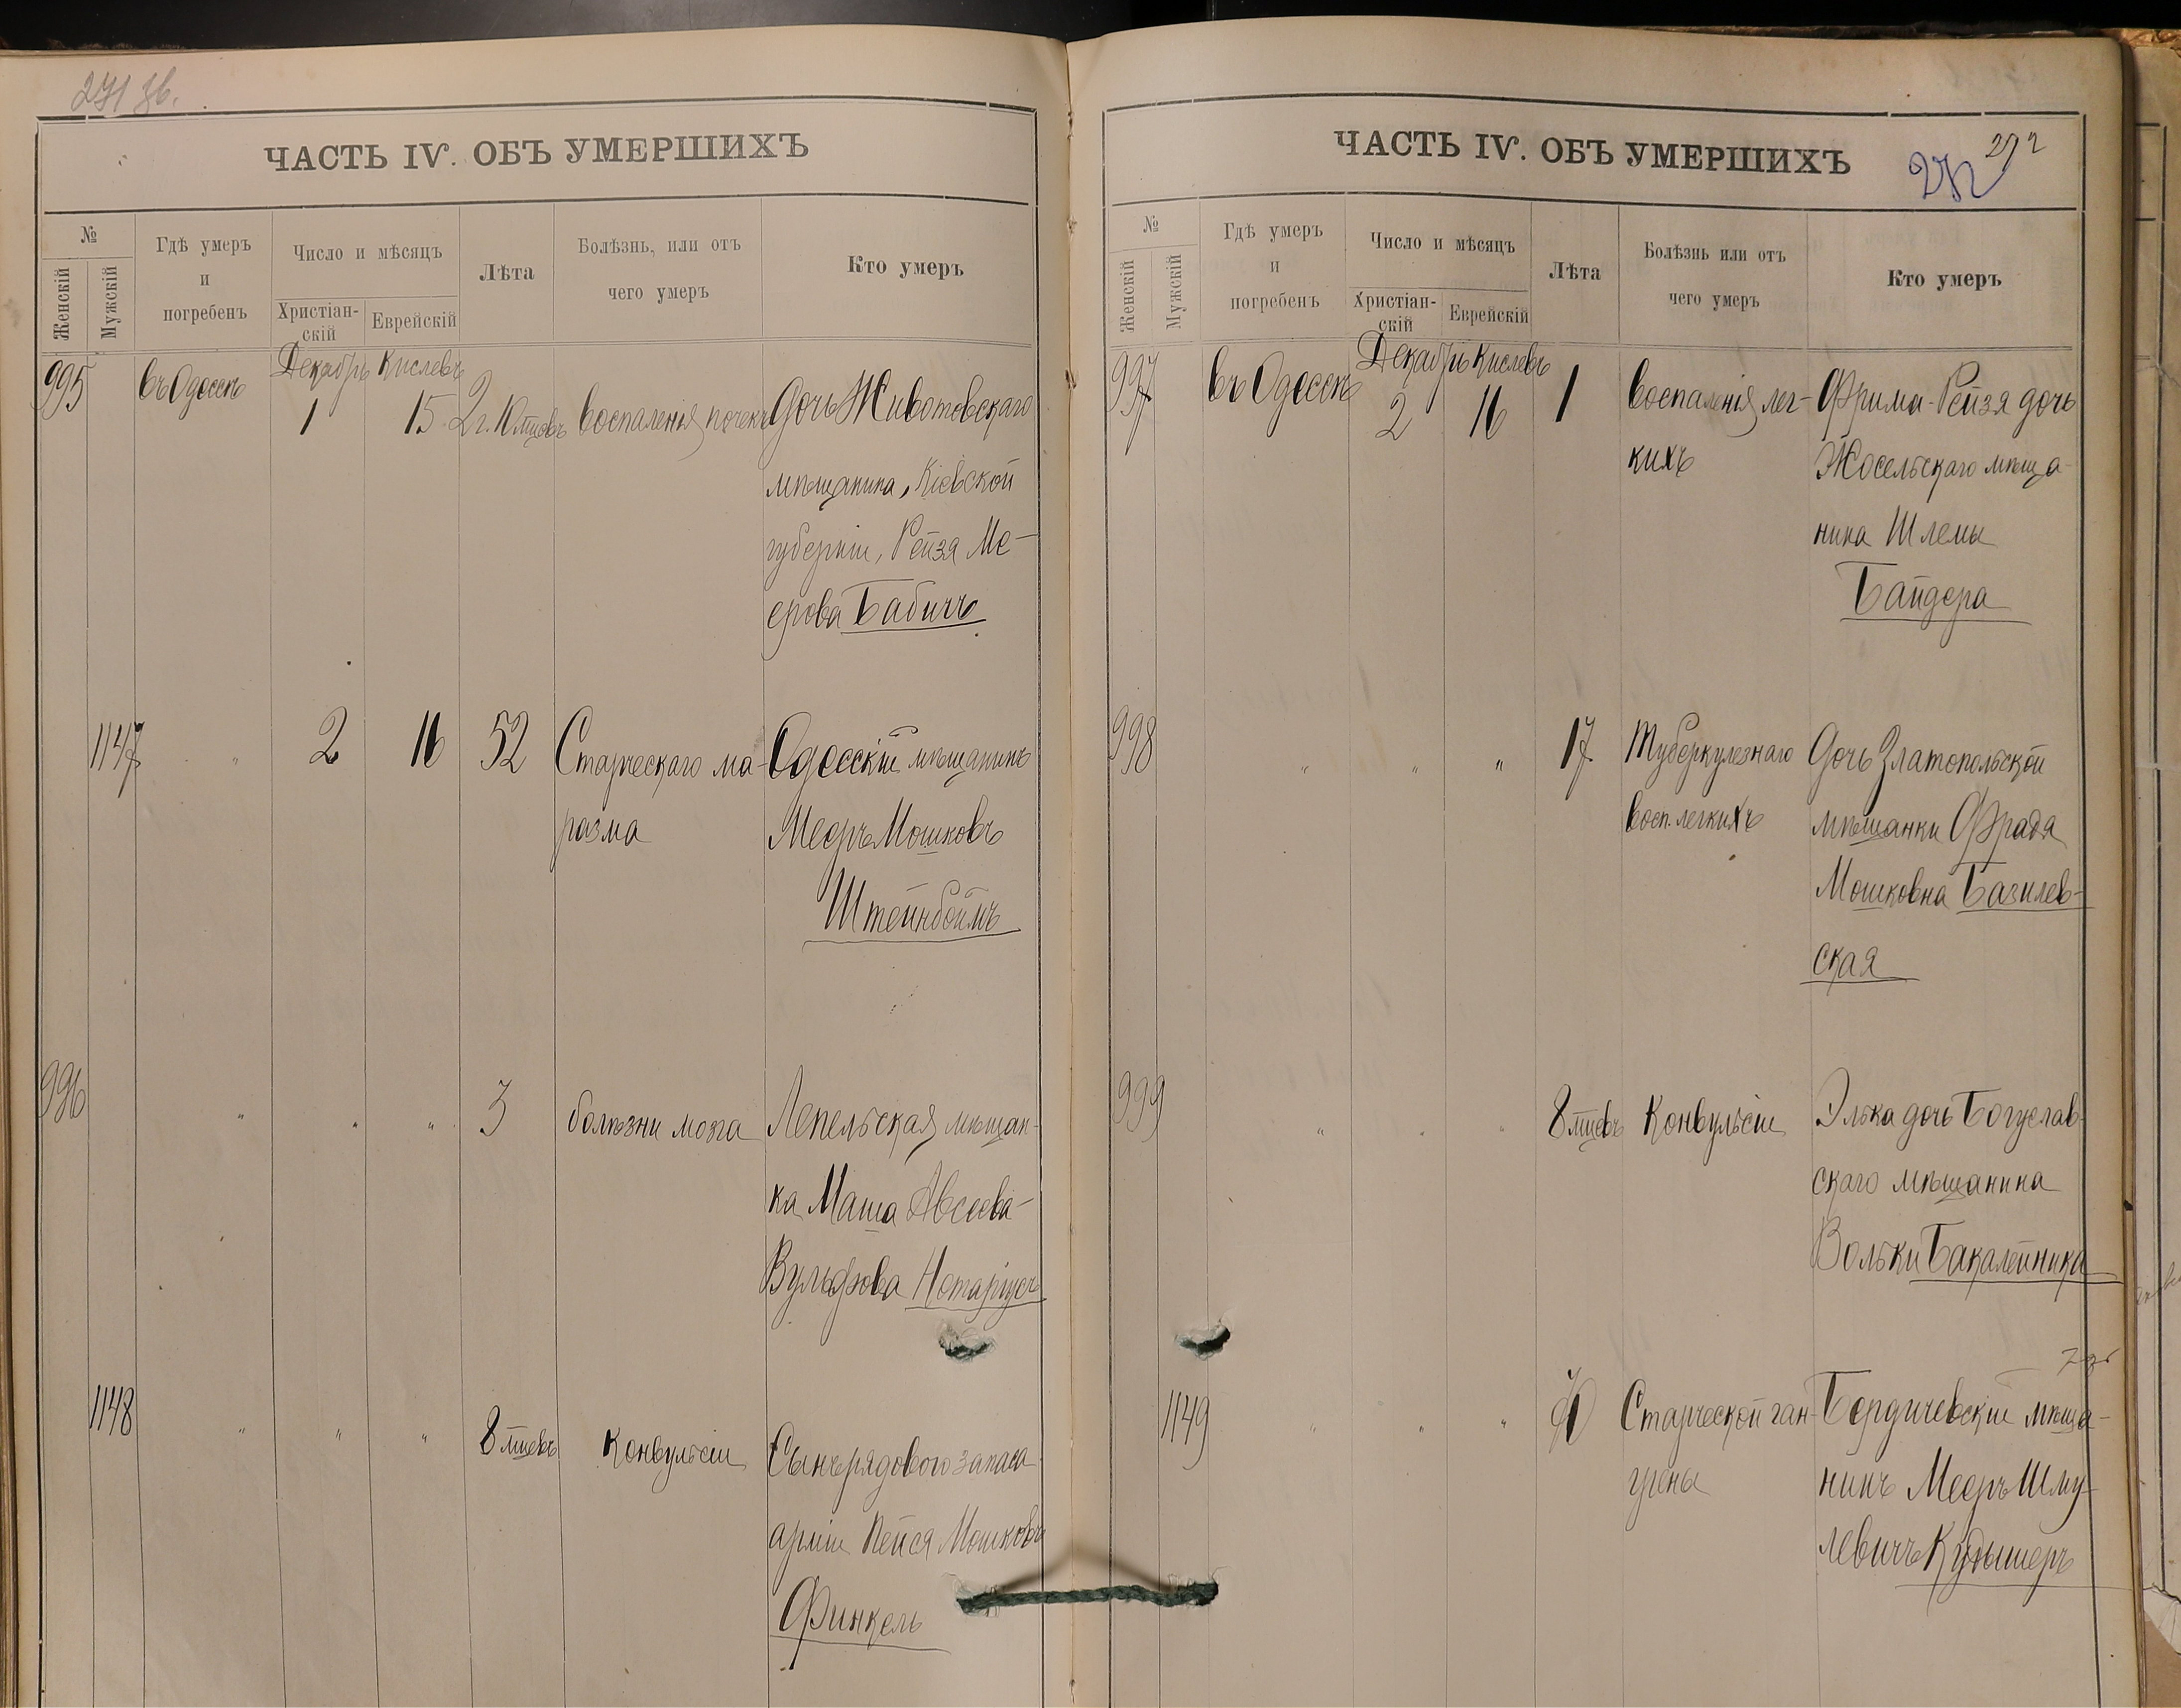 271 зв.
ЧАСТЬ IV. ОБЪ УМЕРШИХЪ
№
Женскій
Мужскій
Гдѣ умеръ
и
погребенъ
Число и мѣсяцъ
Христіан-
скій
Еврейскій
Лѣта
Болѣзнь, или отъ
чего умеръ
Кто умеръ
Декабрь Кислевъ
995 въ Одессѣ 1 15 2 г. 10 мцевъ воспаленія почекъ Дочь Животовскаго
мѣщанина, Кіевской
губерніи, Рейза Ме-
ерова Бабичъ
1147 " 2 16 52 Старческаго ма- Одесскій мѣщанинъ
разма Мееръ Мошковъ
Штейнбоймъ
996 " " " 3 болѣзни мозга Лепельская мѣщан-
ка Маша Авсеева-
Вульфова Нотаріусъ
1148 " " " 8 мцевъ Конвульсіи Сынъ рядового запаса
арміи Пейся Мошковъ
Финкель
ЧАСТЬ IV. ОБЪ УМЕРШИХЪ
272
272
№
Женскій
Мужскій
Гдѣ умеръ
и
погребенъ
Число и мѣсяцъ
Христіан-
скій
Еврейскій
Лѣта
Болѣзнь или отъ
чего умеръ
Кто умеръ
Декабрь Кислевъ
997 въ Одессѣ 2 16 1 воспаленія лег- Фрима-Рейзя дочь
кихъ Жосельскаго мѣща-
нина Шлемы
Байдера
998 " " " 17 Туберкулезнаго Дочь Златопольской
восп. легкихъ мѣщанки Фрадя
Мошковна Базилев-
ская
999 " " " 8 мцевъ Конвульсіи Элька дочь Богуслав-
скаго мѣщанина
Вольки Бакалейника
1149 " " " Старческой ган- Бердичевскій мѣща-
грены нинъ Мееръ Шму-
левичъ Кудышеръ